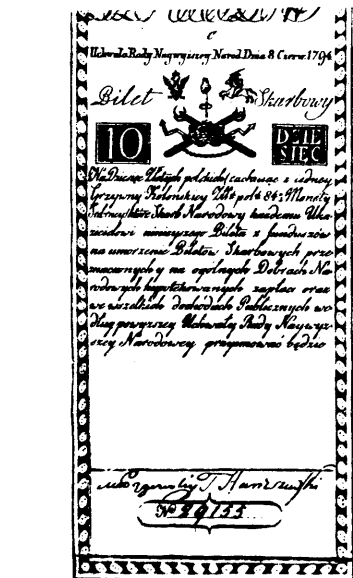 C
Uchwała Rady Naywyższey Narod. Dnia 8 Czerw. 1794
Bilet Skarbowy
10 DZIE SIĘC
Na Dziesięc Złotych polskich rachuiąc z iedney
Grzywny Kolońskiey Zło. pol. 84½ Monety
Srebrney, które Skarb Narodowy każdemu Oka
zicielowi ninieyszego Biletu z funduszów
na umorzenie Biletów Skarbowych prze
znaczonych y na ogólnych Dobrach Na
rodowych hypotekowanych zapłaci oraz
we wszelkich dochodach Publicznych we
dług powyższey Uchwały Rady Naywyż
szey Narodowey przyimować będzie
No 29155